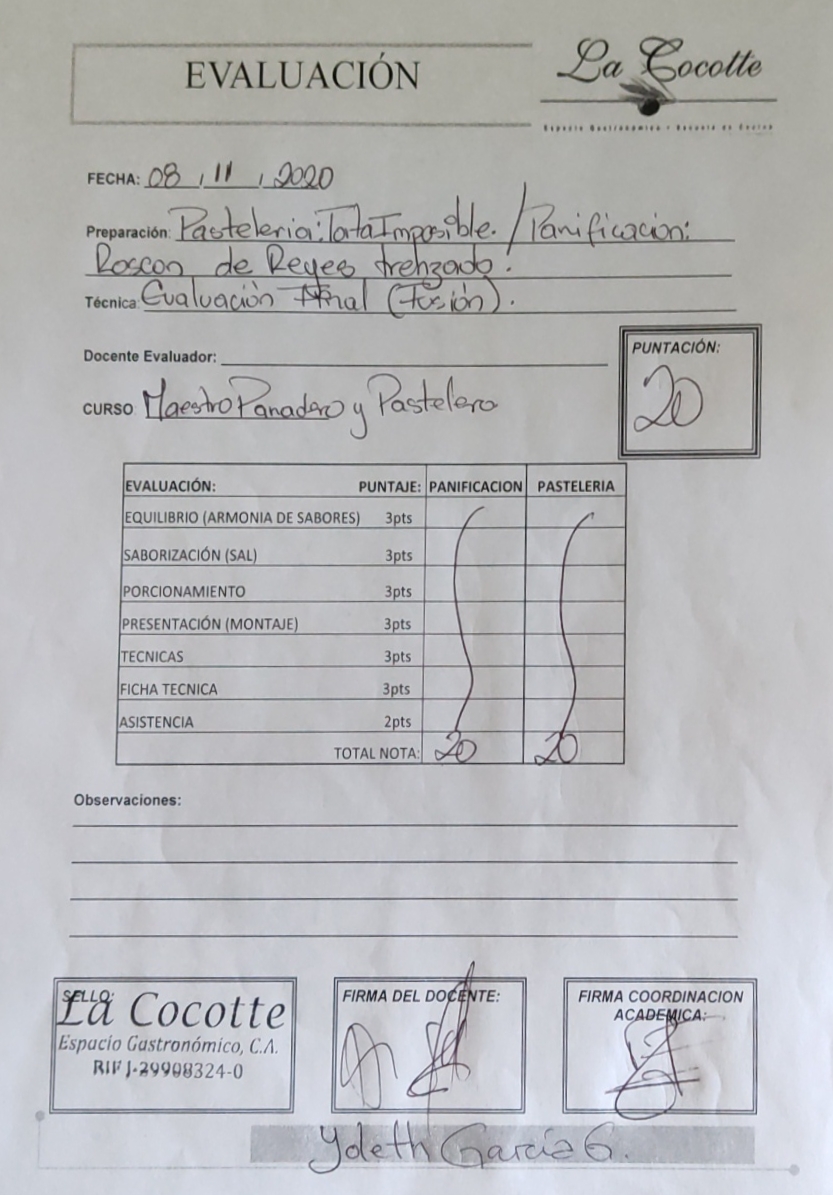 EVALUACIÓN
La Cocotte
Espacio Gastronómico - Escuela de Cocina
FECHA: 08 / 11 / 2020
Preparación: Pasteleria: Tarta Imposible. / Panificacion:
Roscon de Reyes trenzado.
Técnica: Evaluación Final (Fusión).
Docente Evaluador:
PUNTACIÓN:
20
CURSO Maestro Panadero y Pastelero
EVALUACIÓN: PUNTAJE: PANIFICACION PASTELERIA
EQUILIBRIO (ARMONIA DE SABORES) 3pts
SABORIZACIÓN (SAL) 3pts
PORCIONAMIENTO 3pts
PRESENTACIÓN (MONTAJE) 3pts
TECNICAS 3pts
FICHA TECNICA 3pts
ASISTENCIA 2pts
TOTAL NOTA: 20 20
Observaciones:
SELLO:
La Cocotte
Espacio Gastronómico, C.A.
RIF J-29908324-0
FIRMA DEL DOCENTE:
FIRMA COORDINACION
ACADEMICA:
Yoleth García G.